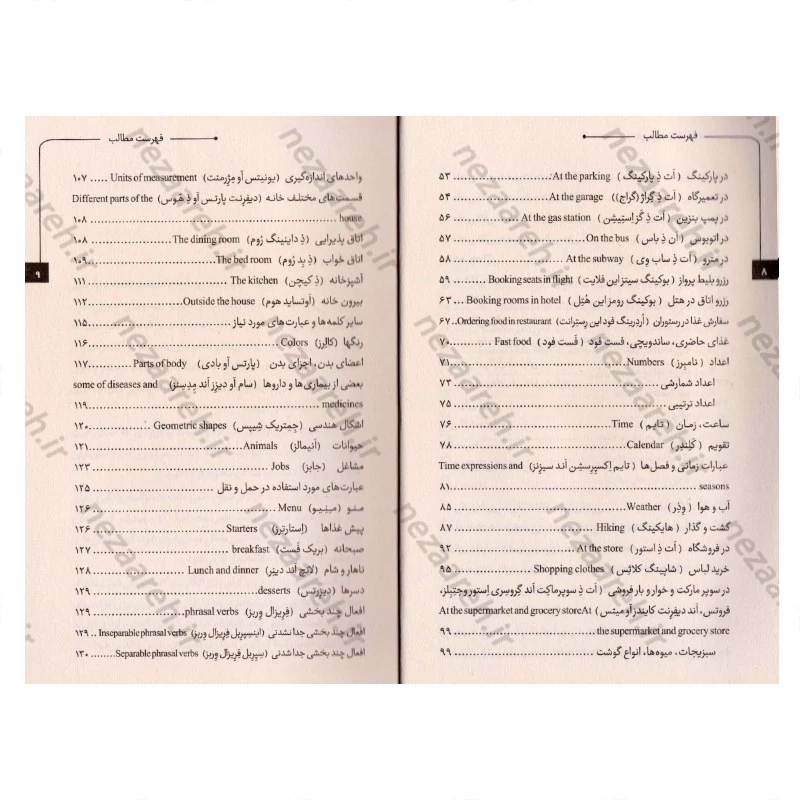 فهرست مطالب
۸
در پارکینگ ( اَت ذِ پارکینگ ) At the parking ........ ۵۳
در تعمیرگاه ( اَت ذِ گِراژ (گراج)) At the garage ........ ۵۴
در پمپ بنزین ( اَت ذِ گَز اِستِیشِن ) At the gas station ........ ۵۶
در اتوبوس ( آن ذِ باس ) On the bus ........ ۵۷
در مترو ( اَت ذِ ساب وِی ) At the subway ........ ۵۸
رزرو بلیط پرواز ( بوکینگ سیتز این فلایت ) Booking seats in flight ........ ۵۹
رزرو اتاق در هتل ( بوکینگ رومز این هُتِل ) Booking rooms in hotel ........ ۶۳
سفارش غذا در رستوران ( اُردِرینگ فود این رِستِرانت ) Ordering food in restaurant.. ۶۷
غذای حاضری، ساندویچی، فست فود ( فَست فود ) Fast food ........ ۷۰
اعداد ( نامبِرز ) Numbers ........ ۷۱
اعداد شمارشی ........ ۷۳
اعداد ترتیبی ........ ۷۵
ساعت، زمان ( تایم ) Time ........ ۷۶
تقویم ( کَلِندِر ) Calendar ........ ۷۸
عبارات زمانی و فصل‌ها ( تایم اِکسپرِسشِن اَند سیزِنز ) Time expressions and
seasons ........ ۸۱
آب و هوا ( وِذِر ) Weather ........ ۸۵
گشت و گذار ( هایکینگ ) Hiking ........ ۸۷
در فروشگاه ( اَت ذِ استور ) At the store ........ ۹۲
خرید لباس ( شاپینگ کلاثِس ) Shopping clothes ........ ۹۵
در سوپر مارکت و خوار و بار فروشی ( اَت ذِ سوپرماکِت اَند گِروسِری اِستور وِجتِبِلز،
فروتس، اَند دیفرِنت کایندز آو میتس ) At the supermarket and grocery storeAt
the supermarket and grocery store ........ ۹۹
سبزیجات، میوه‌ها، انواع گوشت ........ ۹۹
فهرست مطالب
۹
واحدهای اندازه‌گیری ( یونیتس آو مِژِرمِنت ) Units of measurement ..... ۱۰۷
قسمت‌های مختلف خانه ( دیفِرِنت پارتس آو ذِ هَوس ) Different parts of the
house ........ ۱۰۸
اتاق پذیرایی ( ذِ داینینگ رُوم ) The dining room ........ ۱۰۸
اتاق خواب ( ذِ بِد رُوم ) The bed room ........ ۱۰۹
آشپزخانه ( ذِ کیچِن ) The kitchen ........ ۱۱۱
بیرون خانه ( آوتساید هوم ) Outside the house ........ ۱۱۲
سایر کلمه‌ها و عبارت‌های مورد نیاز ........ ۱۱۵
رنگها ( کالِرز ) Colors ........ ۱۱۶
اعضای بدن، اجزای بدن ( پارتس آو بادی ) Parts of body ........ ۱۱۷
بعضی از بیماری‌ها و داروها ( سام آو دیزِز اَند مِدِسِنز ) some of diseases and
medicines ........ ۱۱۹
اشکال هندسی ( جِمتریک شِیپس ) Geometric shapes ........ ۱۲۰
حیوانات ( اَنیمالز ) Animals ........ ۱۲۱
مشاغل ( جابز ) Jobs ........ ۱۲۳
عبارت‌های مورد استفاده در حمل و نقل ........ ۱۲۵
منو ( مینیو ) Menu ........ ۱۲۶
پیش غذاها ( اِستارتِرز ) Starters ........ ۱۲۶
صبحانه ( بریک فَست ) breakfast ........ ۱۲۷
ناهار و شام ( لانچ اَند دینِر ) Lunch and dinner ........ ۱۲۸
دسرها ( دیزِرتس ) desserts ........ ۱۲۹
افعال چند بخشی ( فِریزال وِربز ) phrasal verbs ........ ۱۲۹
افعال چند بخشی جدا نشدنی ( اینسِپِرِبل فِریزال وِربز ) Inseparable phrasal verbs .. ۱۲۹
افعال چند بخشی جدا شدنی ( سِپِرِبل فِریزال وِربز ) Separable phrasal verbs ........ ۱۳۰
nezaareh.ir